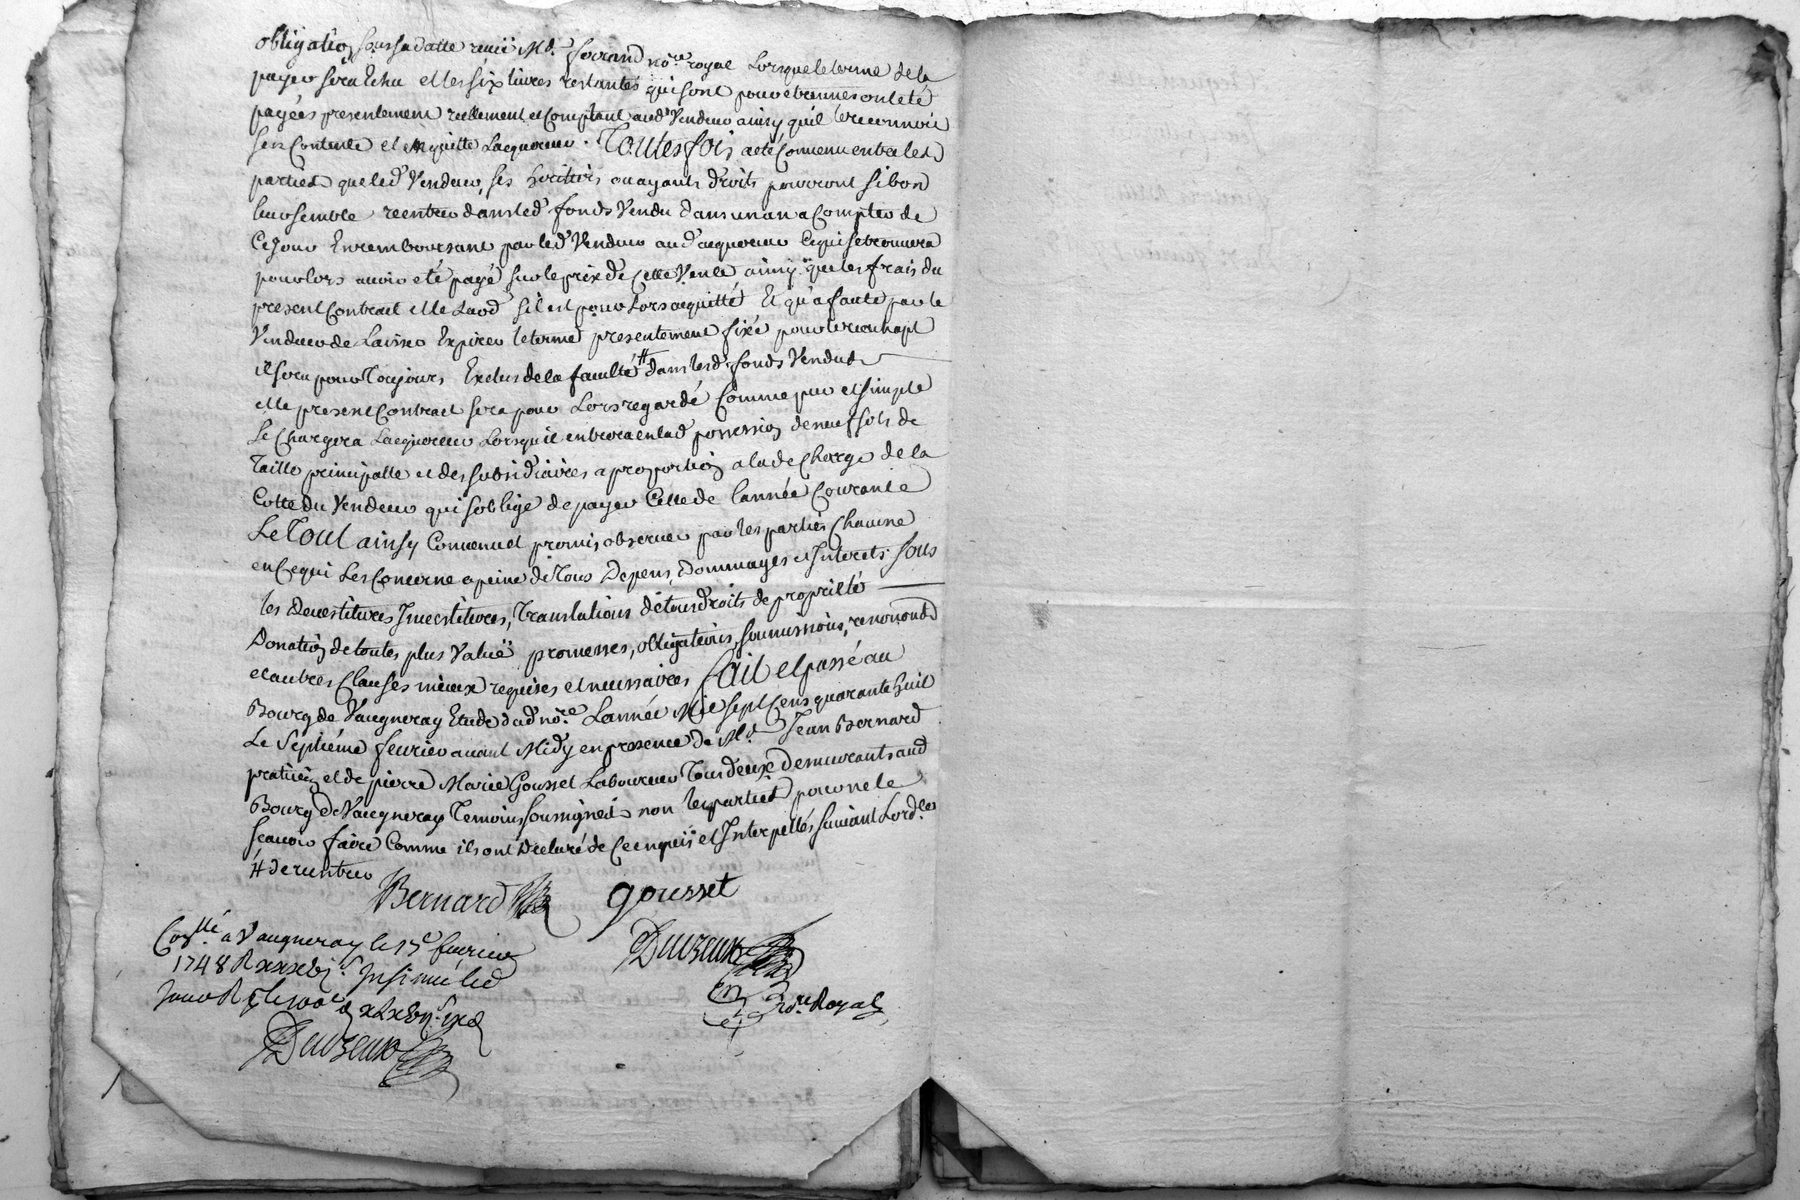 obligation soussa datte reçuë Md. ferrand no.re royal Lorsque le terme de la
payer sera Echu et les six livres restantes qui sont pour étrennes ont eté
payées presentement reellement et Comptant aud. Vendeur ainsy quil le reconnoit
sen Contente et en quitte Lacquereur. Toutesfois a eté Convenu entre les
parties que led. Vendeur, ses heritiers ou ayants droits pourront si bon
leur semble rentrer dans led. fonds Vendu dans un an a Compter de
Ce jour En remboursant par led. Vendeur aud. acquereur Ce qui se trouvera
pour lors avoir eté payé sur le prix de Cette Vente ainsy que les frais du
present Contract et le Laod s'il est pour Lors acquitté Et qu'a faute par le
Vendeur de Laisser Expirer le terme presentement fixé pour le reachapt
il sera pour Toujours Exclus de la faculté # dans lesd. fonds Vendus
et le present Contract sera pour Lors regardé Comme pur et simple
Se Chargera Lacquereur Lorsqu'il entrera en lad. possession de neuf sols de
Taille principalle et des subsidiaires a proportion a la deCharge de la
Cotte du Vendeur qui s'oblige de payer Celle de l'année Courante
Le Tout ainsy Convenu et promis observer par les parties Chacune
en Ce qui Les Concerne a peine de Tous Depens, Dommages et Interets. Sous
les Devestitures Investitures, Translations de tous droits de proprieté
Donation de toutes plus Valuë promesses, obligations, soumissions, renonond.
et autres Clauses mieux requises et necessaires Fait et passé au
Bourg de Vaugneray Etude dud. no.re L'année Mil sept Cens quarante huit
Le Septiéme fevrier avant Midy en presence de Md. Jean Bernard
praticien et de pierre Marie Gousset Laboureur Tous deux demeurants aud.
Bourg de Vaugneray Temoins soussignés non les parties pour ne le
scavoir faire Comme ils ont declaré de Ce enquis et Interpellés suivant Lord.ces
# de rentrer
Bernard gousset
Con.llé a Vaugneray le 17e fevrier
1748 R
Insinué led.
jour R
Duvzeur
no.re Royal